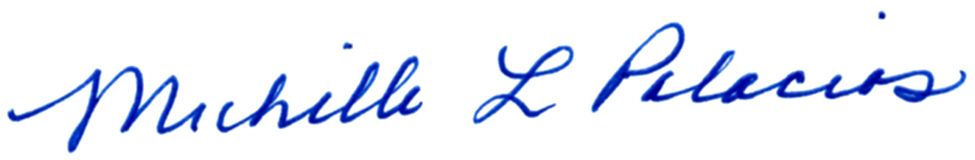 Michelle L Palacios